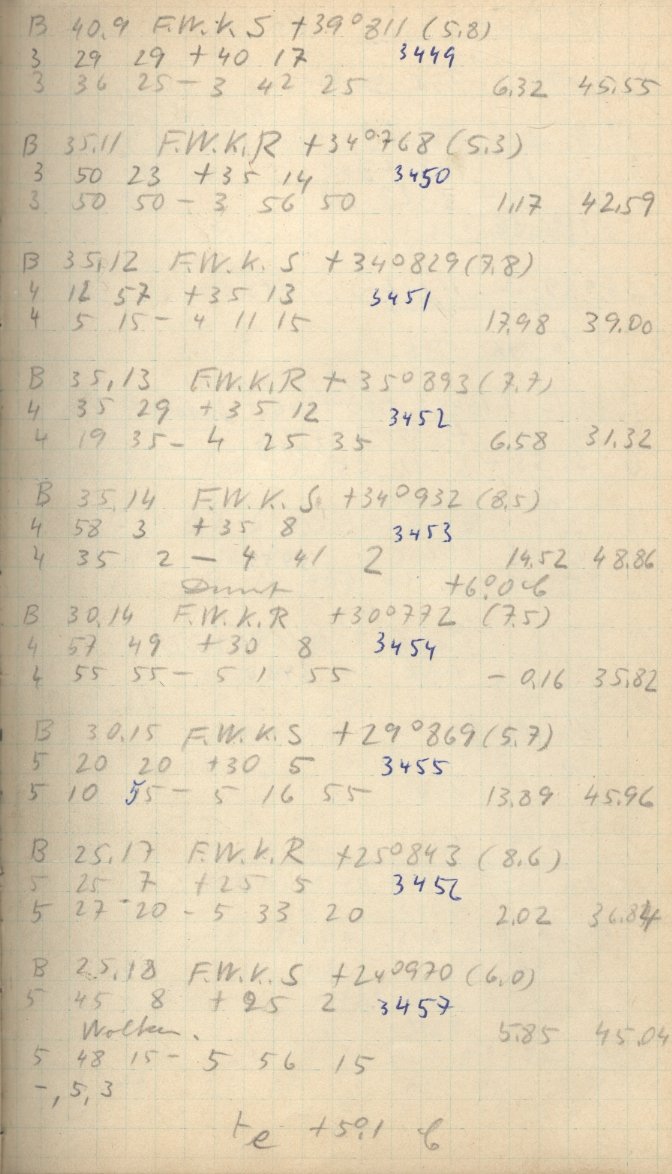 B 40,9 F.W.K.S +39°811 (5,8)
3 29 29 +40 17 3449
3 36 25 - 3 42 25 6,32 45,55
B 35,11 F.W.K.R +34°768 (5,3)
3 50 23 +35 14 3450
3 50 50 - 3 56 50 1,17 42,59
B 35,12 F.W.K.S +34°829 (7,8)
4 12 57 +35 13 3451
4 5 15 - 4 11 15 17,98 39,00
B 35,13 F.W.K.R +35°893 (7,7)
4 35 29 +35 12 3452
4 19 35 - 4 25 35 6,58 31,32
B 35,14 F.W.K.S +34°932 (8,5)
4 58 3 +35 8 3453
4 35 2 - 4 41 2 14,52 48,86
Dunst +6°,0 C
B 30,14 F.W.K.R +30°772 (7,5)
4 57 49 +30 8 3454
4 55 55 - 5 1 55 - 0,16 35,82
B 30,15 F.W.K.S +29°869 (5,7)
5 20 20 +30 5 3455
5 10 55 - 5 16 55 13,89 45,96
B 25,17 F.W.K.R +25°843 (8,6)
5 25 7 +25 5 3456
5 27 20 - 5 33 20 2,02 36,84
B 25,18 F.W.K.S +24°970 (6,0)
5 45 8 +25 2 3457
Wolken. 5,85 45,04
5 48 15 - 5 56 15
-, 5, 3
te +5°,1 C